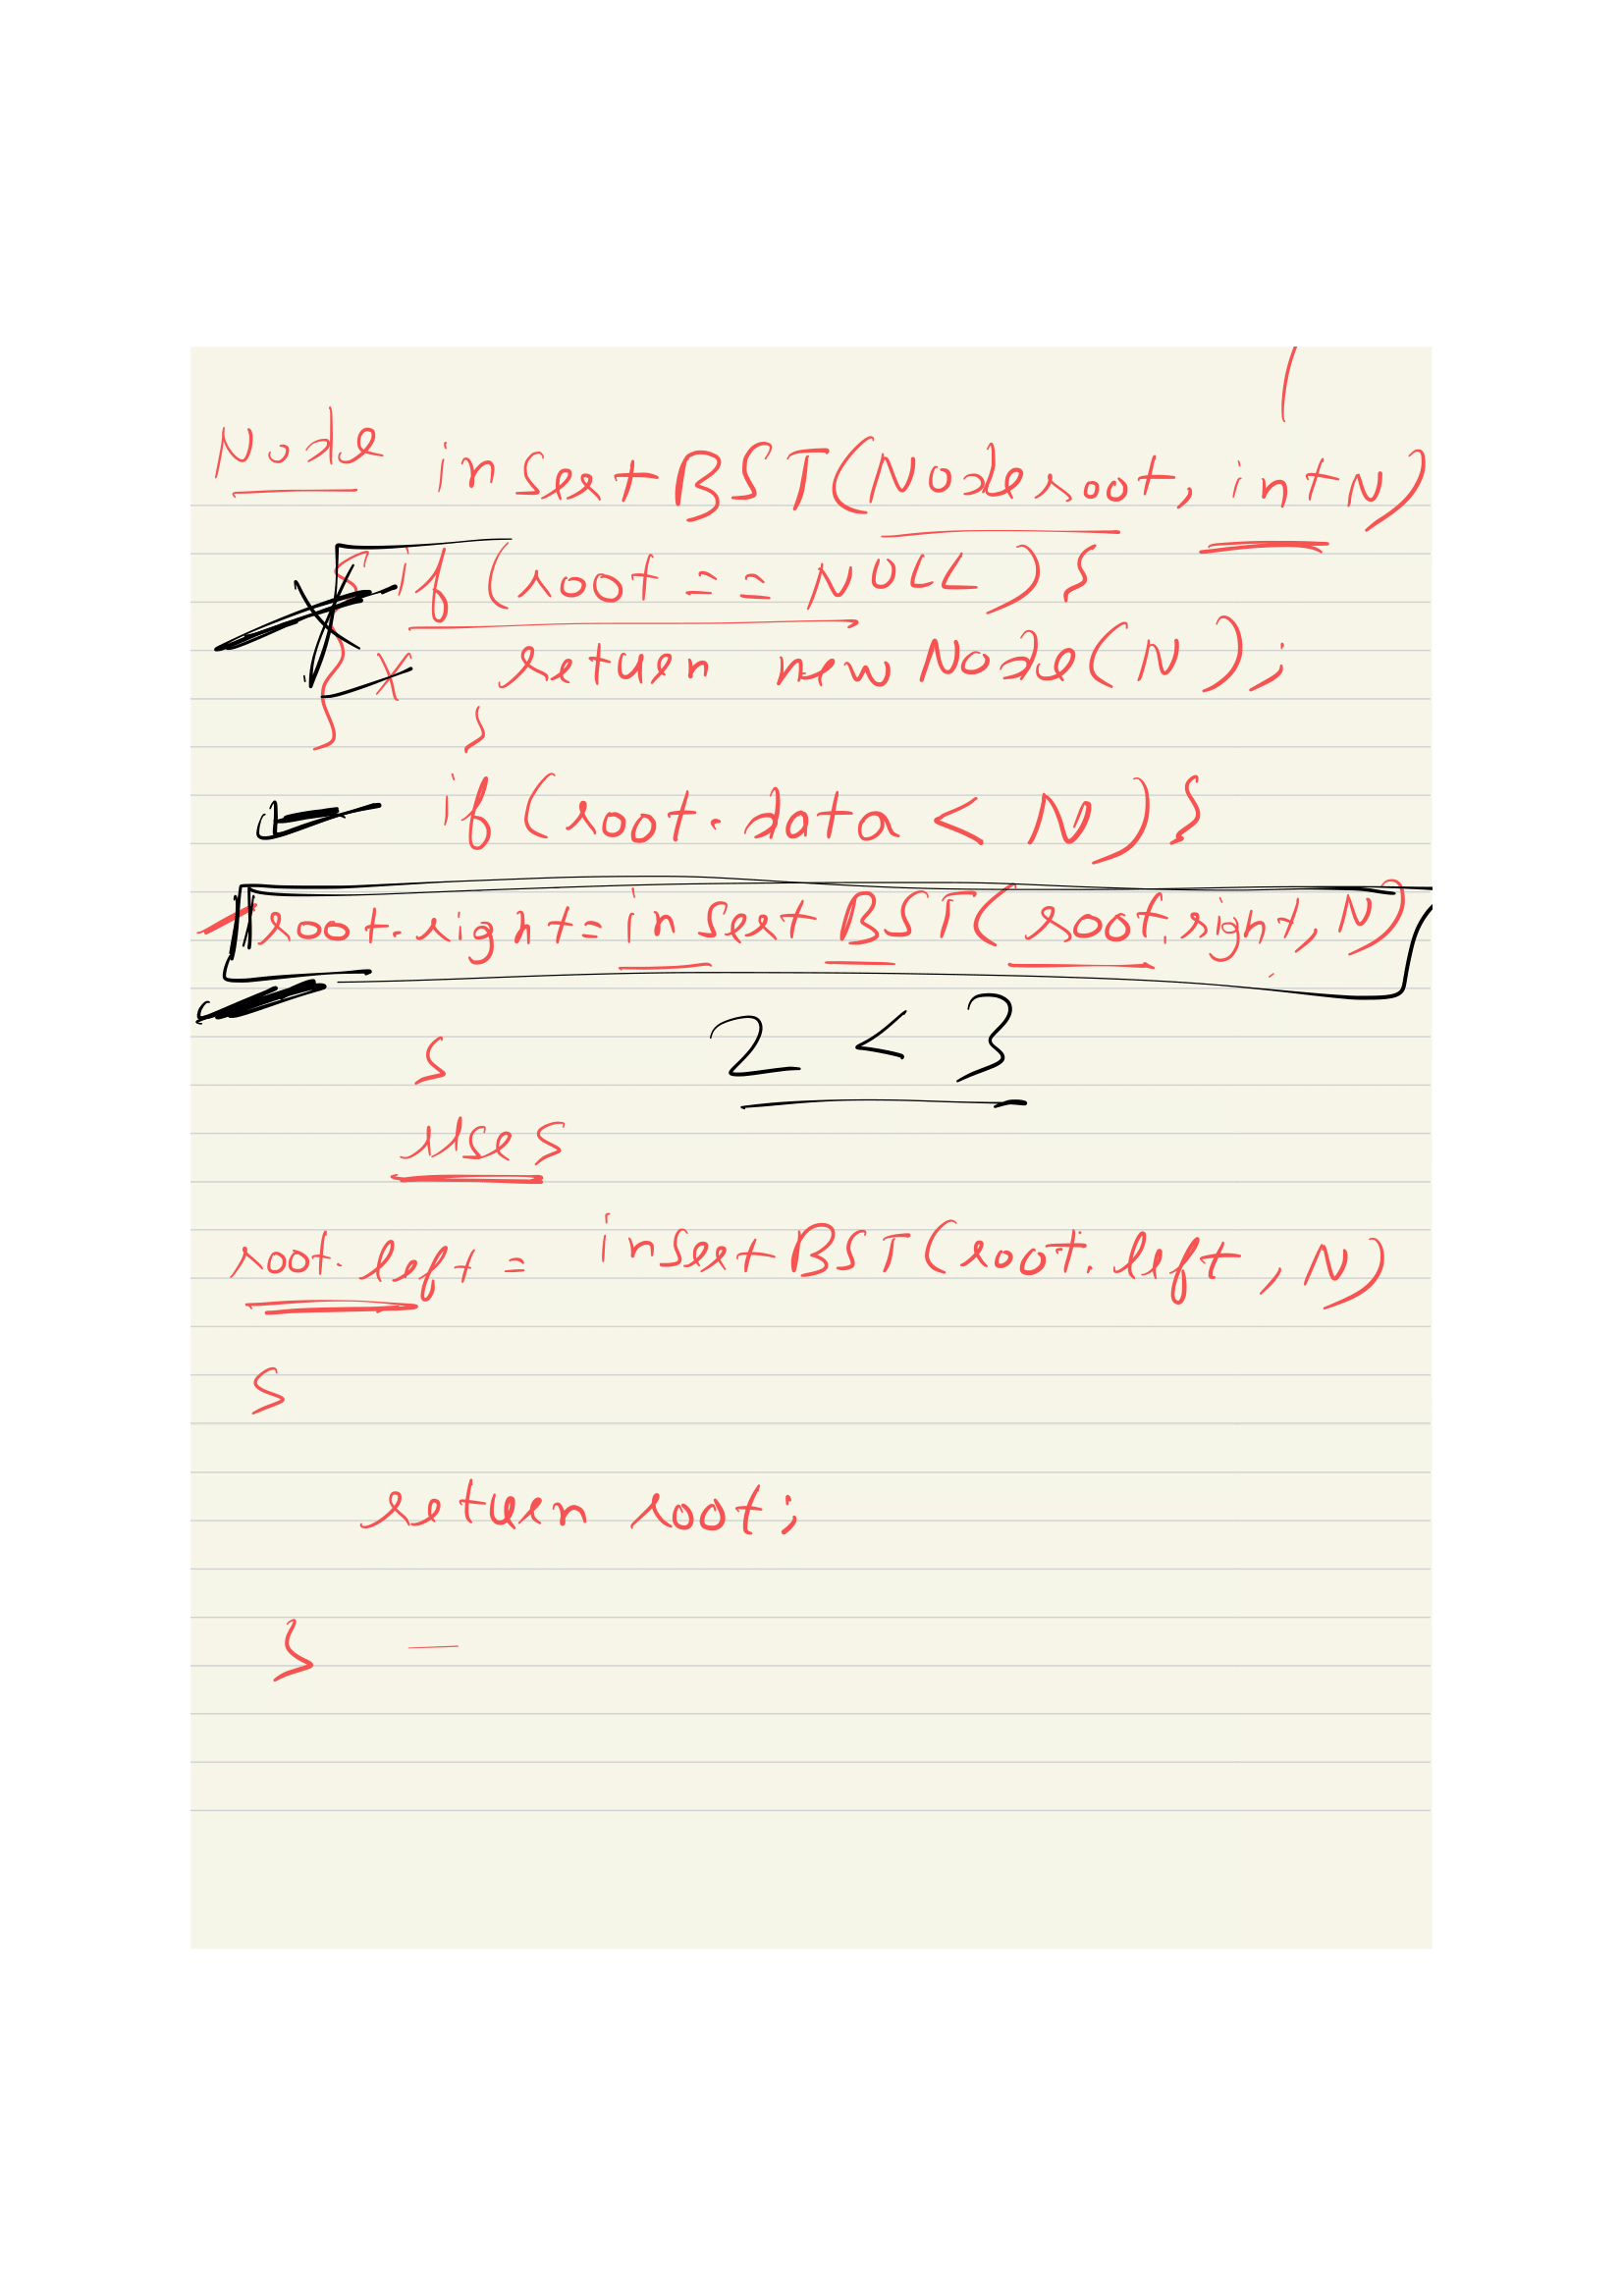 Node insertBST(Node root, int N)
{ if (root == NULL) {
x return new Node(N);
}
if (root.data < N) {
root.right = insertBST(root.right, N)
}
2 < 3
else {
root.left = insertBST(root.left, N)
}
return root;
} —